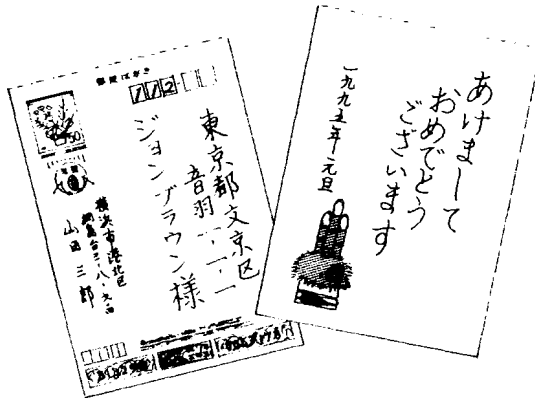 郵便はがき
112
東京都文京区
音羽一・一・一
ジョンブラウン様
年賀
50
横浜市港北区
山田三郎
あけまして
おめでとう
ございます
一九九五年元旦